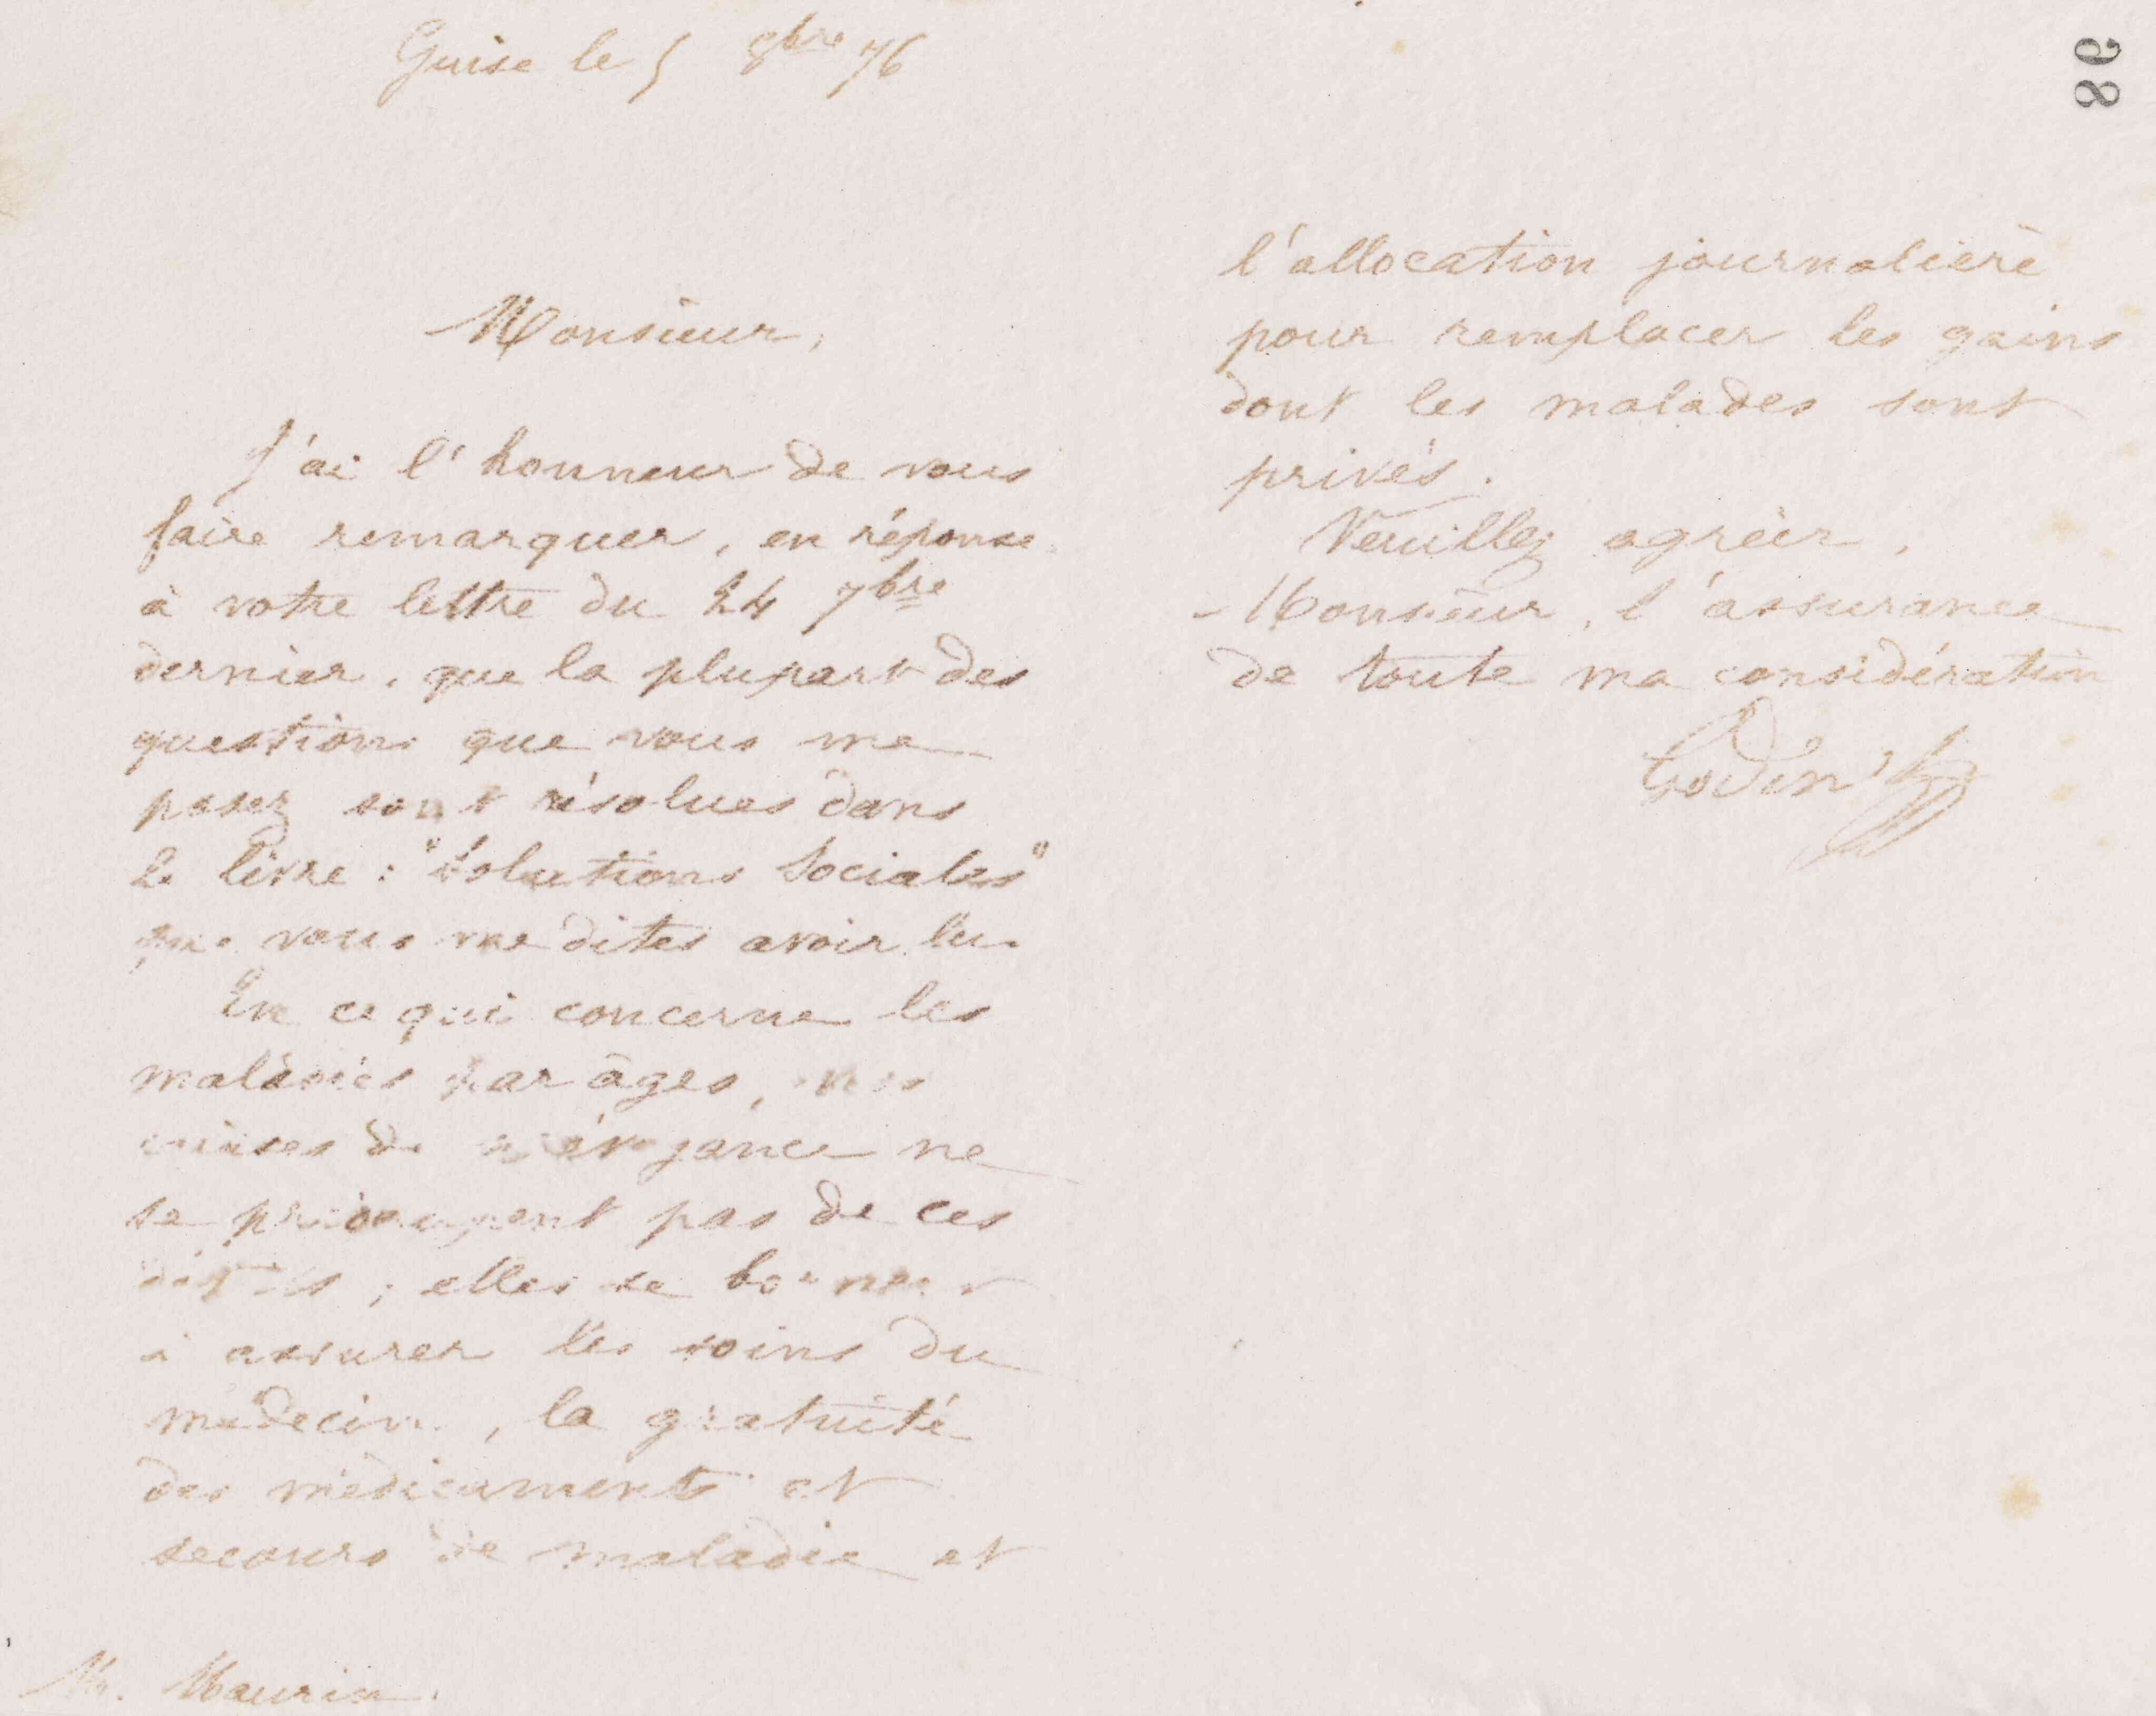 98
Guise le 5 8bre 76
Monsieur,
J'ai l'honneur de vous
faire remarquer, en réponse
à votre lettre du 24 7bre
dernier, que la plupart des
questions que vous me
posez sont résolues dans
le livre : "Solutions Sociales"
que vous me dites avoir lu.
En ce qui concerne les
maladies par âges, nos
caisses de prévoyance ne
se préoccupent pas de ces
; elles se bornent
à assurer les soins du
médecin, la gratuité
des médicaments et
secours de maladie et
Mr. Maurin.
l'allocation journalière
pour remplacer les gains
dont les malades sont
privés.
Veuillez agréer,
Monsieur, l'assurance
de toute ma considération
Godin